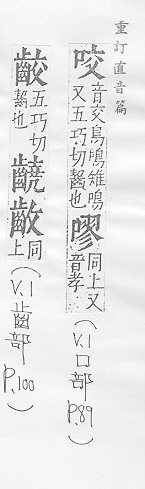 重訂直音篇
咬音交鳥鳴雉鳴又五巧切齧也嘐同上又音孝(V.1口部P.89)
齩五巧切齧也𪙨䶧同上(V.1齒部P.100)